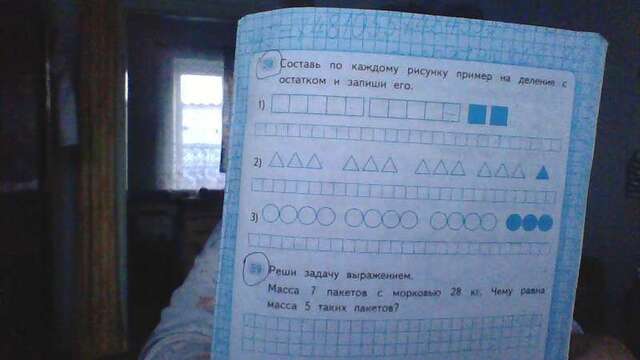 Составь по каждому рисунку пример на деление с
остатком и запиши его.
1)
2)
3)
39 Реши задачу выражением.
Масса 7 пакетов с морковью 28 кг. Чему равна
масса 5 таких пакетов?